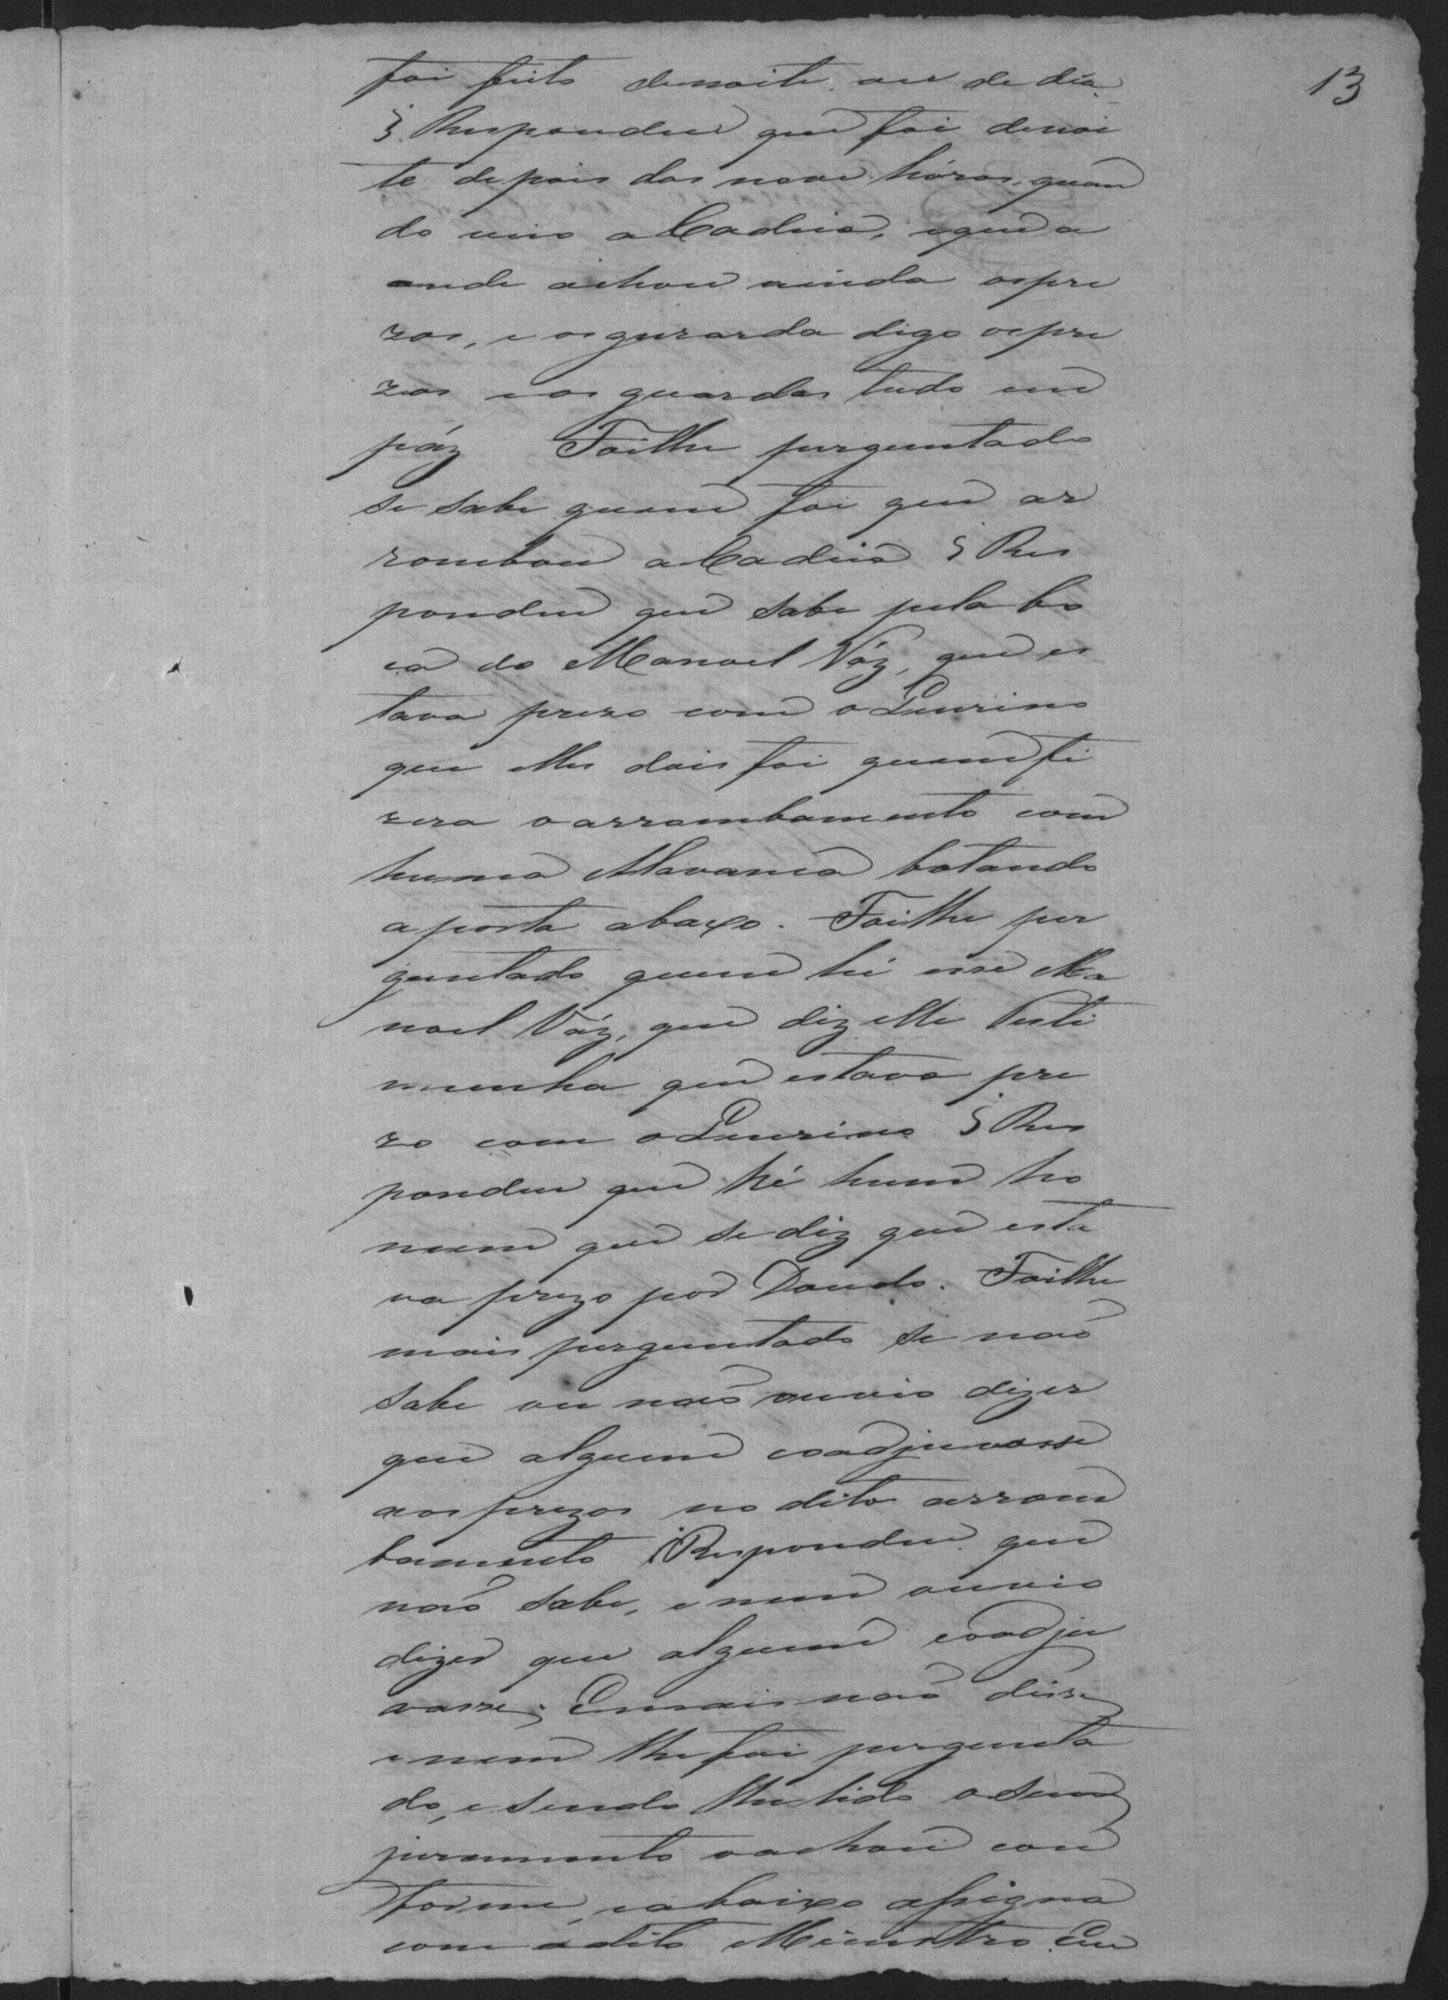 13
foi feito denoite ou de dia
? Respondeu que foi denoi
te depois das nove hóras, quan
do veio a Cadeia, e que a
onde achou ainda ospre
zos, e osgurarda digo ospre
zos e os guardas tudo em
páz Foilhe perguntado
se sabe quem foi que ar
rombou a Cadeia ? Res
pondeu que sabe pela bo
ca do Manoel Váz, que es
tava prezo com o Leurino
que elles dois foi quem fi
zera o arrombamento com
huma Alavanca botando
a porta abaxo. Foilhe per
guntado quem hé esse Ma
noel Váz, que diz elle Testi
munha que estava pre
zo com o Leurino ? Res
pondeu que hé hum ho
mem que se diz que esta
va prezo por Doudo. Foilhe
mais perguntado se naõ
sabe ou naõ ouvio dizer
que alguem coadjuvasse
aos prezos no dito arrom
bamento ? Respondeu que
naõ sabe, e nem ouvio
dizer que alguem coadju
vasse; E mais naõ disse
e nem lhe foi pergunta
do, e sendo lhe lido o seu
juramento o achou con
forme, e abaixo assigna
com o dito Ministro. Eu